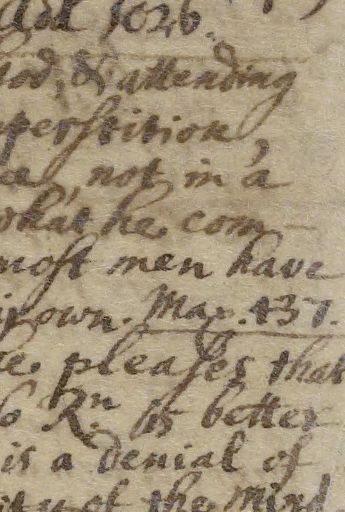 Add 1026.
God, & attending
perstition,
, not in a
what he com-
most men have
ir own. Max. 437.
pleases that
Rn is better
is a denial of
ity of the Mind